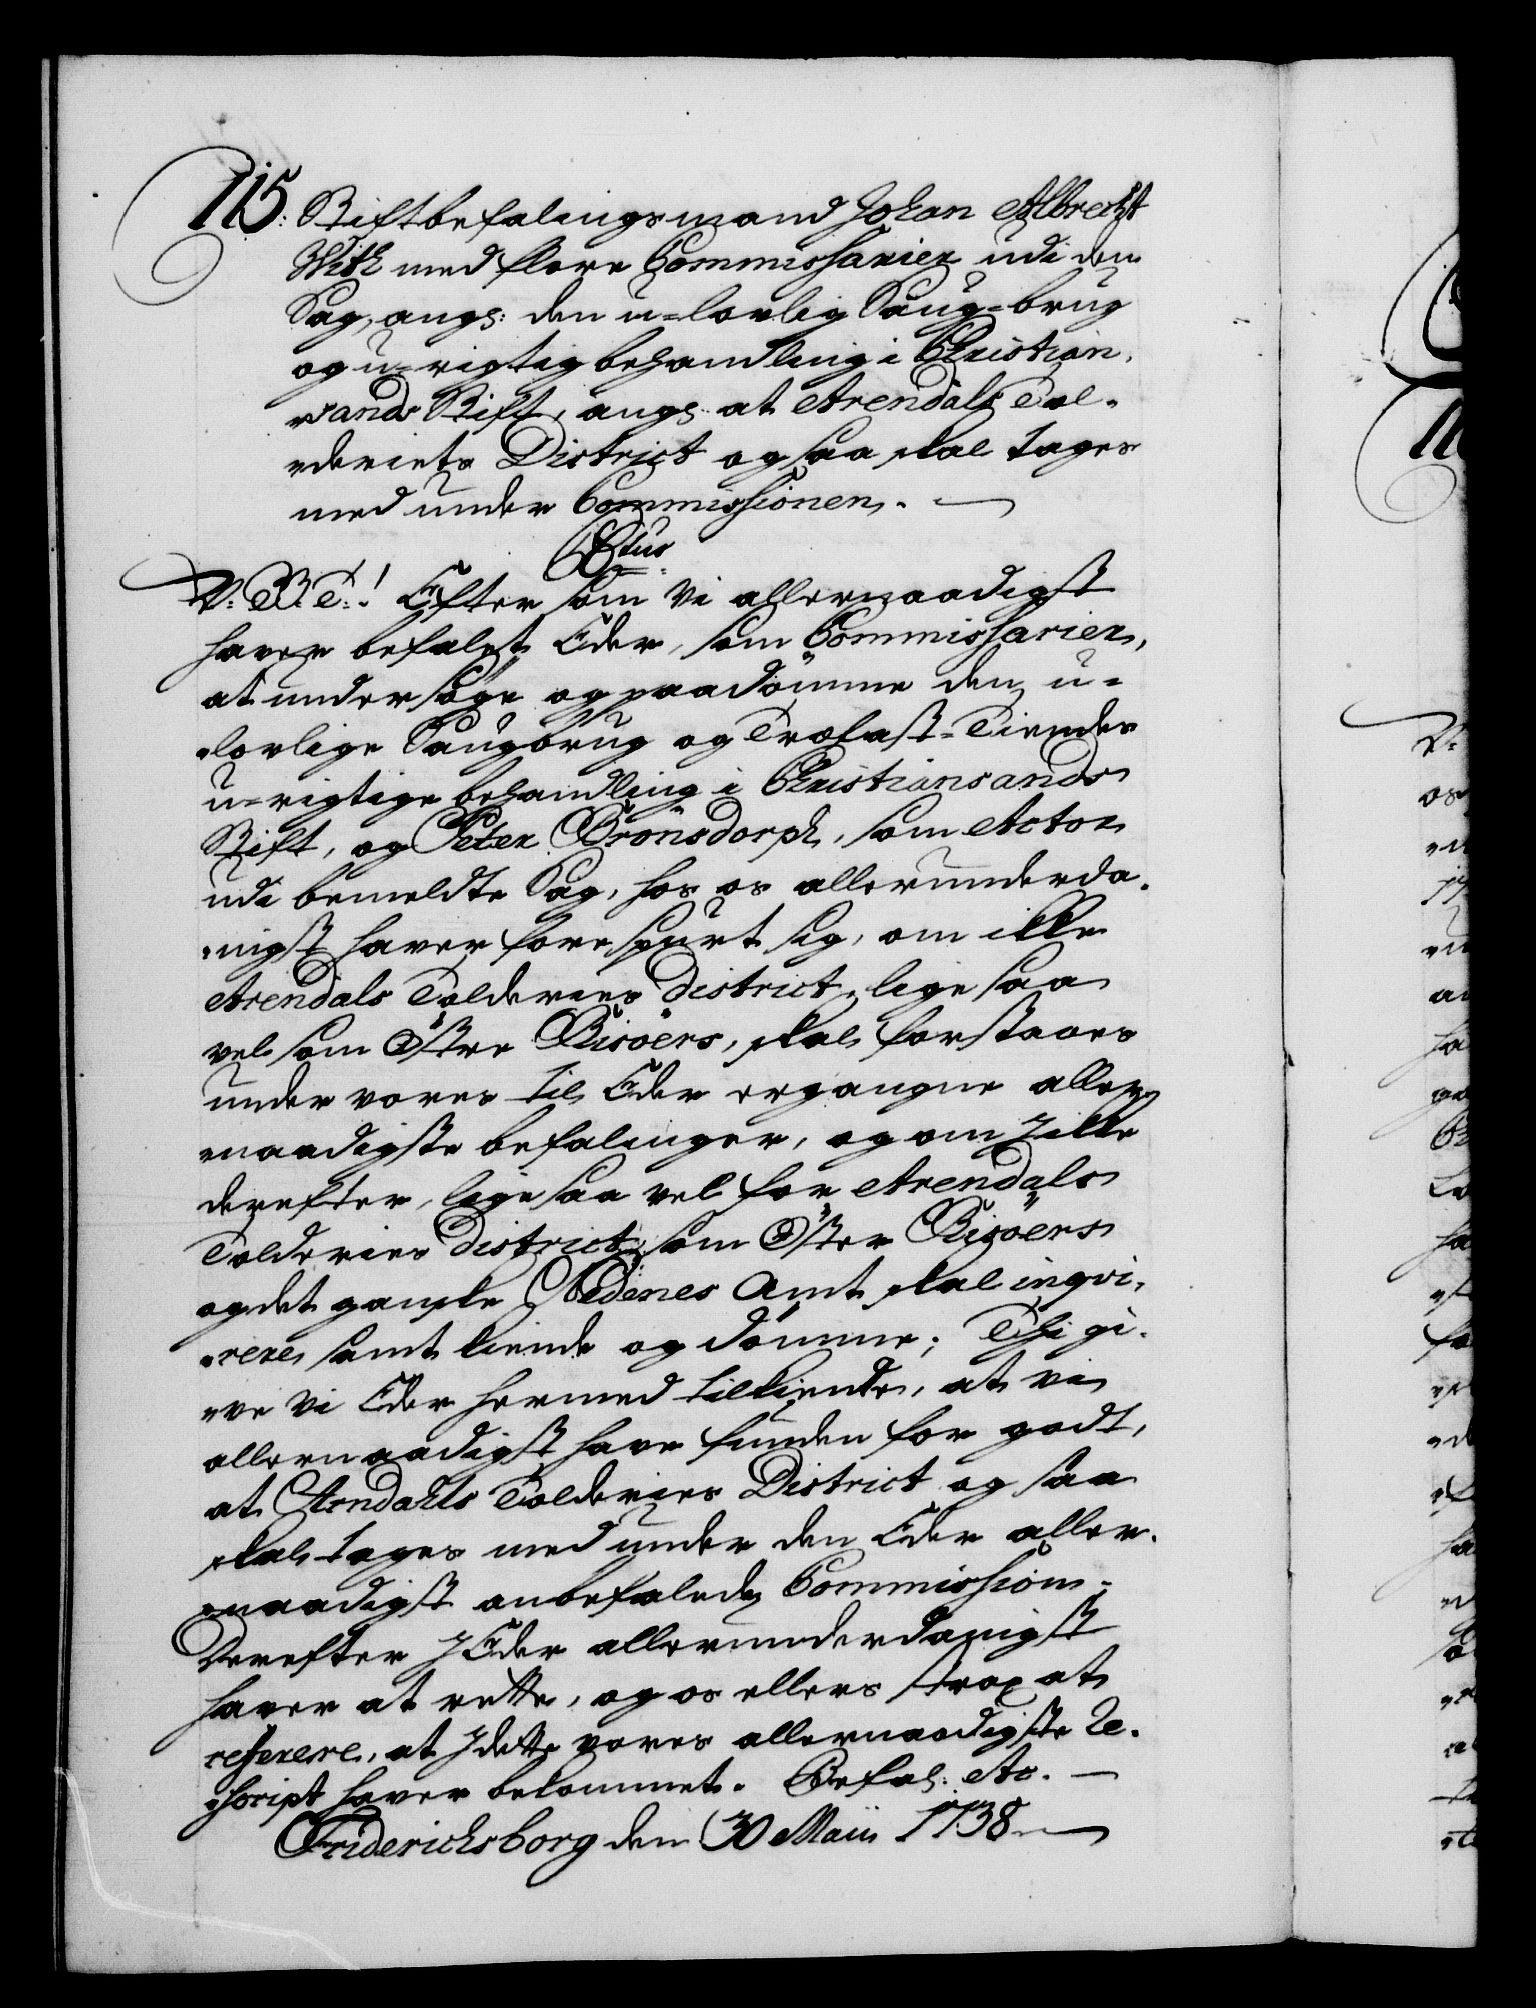 115. Stiftbefalingsmand Johan Albrecht
With med flere Commissarier udi den
Sag, angl: den u=lovlig Saug=brug
og u=rigtig behandling i Christian,
„sands Stift, angl: at Arendals Tol-
„deriets District og saa skal tages
med under Commissionen.
Ctus
V: B: T:! Eftersom Vi allernaadigst
haver befalet Eder, som Commissarier,
at undersöge og paadömme den u=
„lovlige Saugbrug og Trælast-Tiendes
u=rigtige behandling i Christiansands
Stift, og Peter Brönsdorph, som Actor
udi bemeldte Sag, hos os allerunderda-
„nigst haver forespurt sig, om ikke
Arendals Tolderies District, lige saa
vel som Öster Riisöers, skal forstaaes
under vores til Eder ergangne aller-
„naadigste befalinger, og om I ikke
derefter, lige saa vel for Arendals
Tolderies District, som Öster Riisöers
og det gamle Nedenes Amt skal inqvi,
„rere, samt kiende og dömme; Thi gi-
„ve Vi Eder hermed tilkiende, at vi
allernaadigst have funden for godt,
at Arndahls Tolderies District og saa
skal tages med under den Eder aller-
„naadigst anbefalede Commission.
Derefter I Eder allerunderdanigst
haver at rette, og os ellers strax at
referere, at I dette vores allernaadigste Re-
„script haver bekommet. Befal: etc.
Friderichsborg den 30 Maii 1738